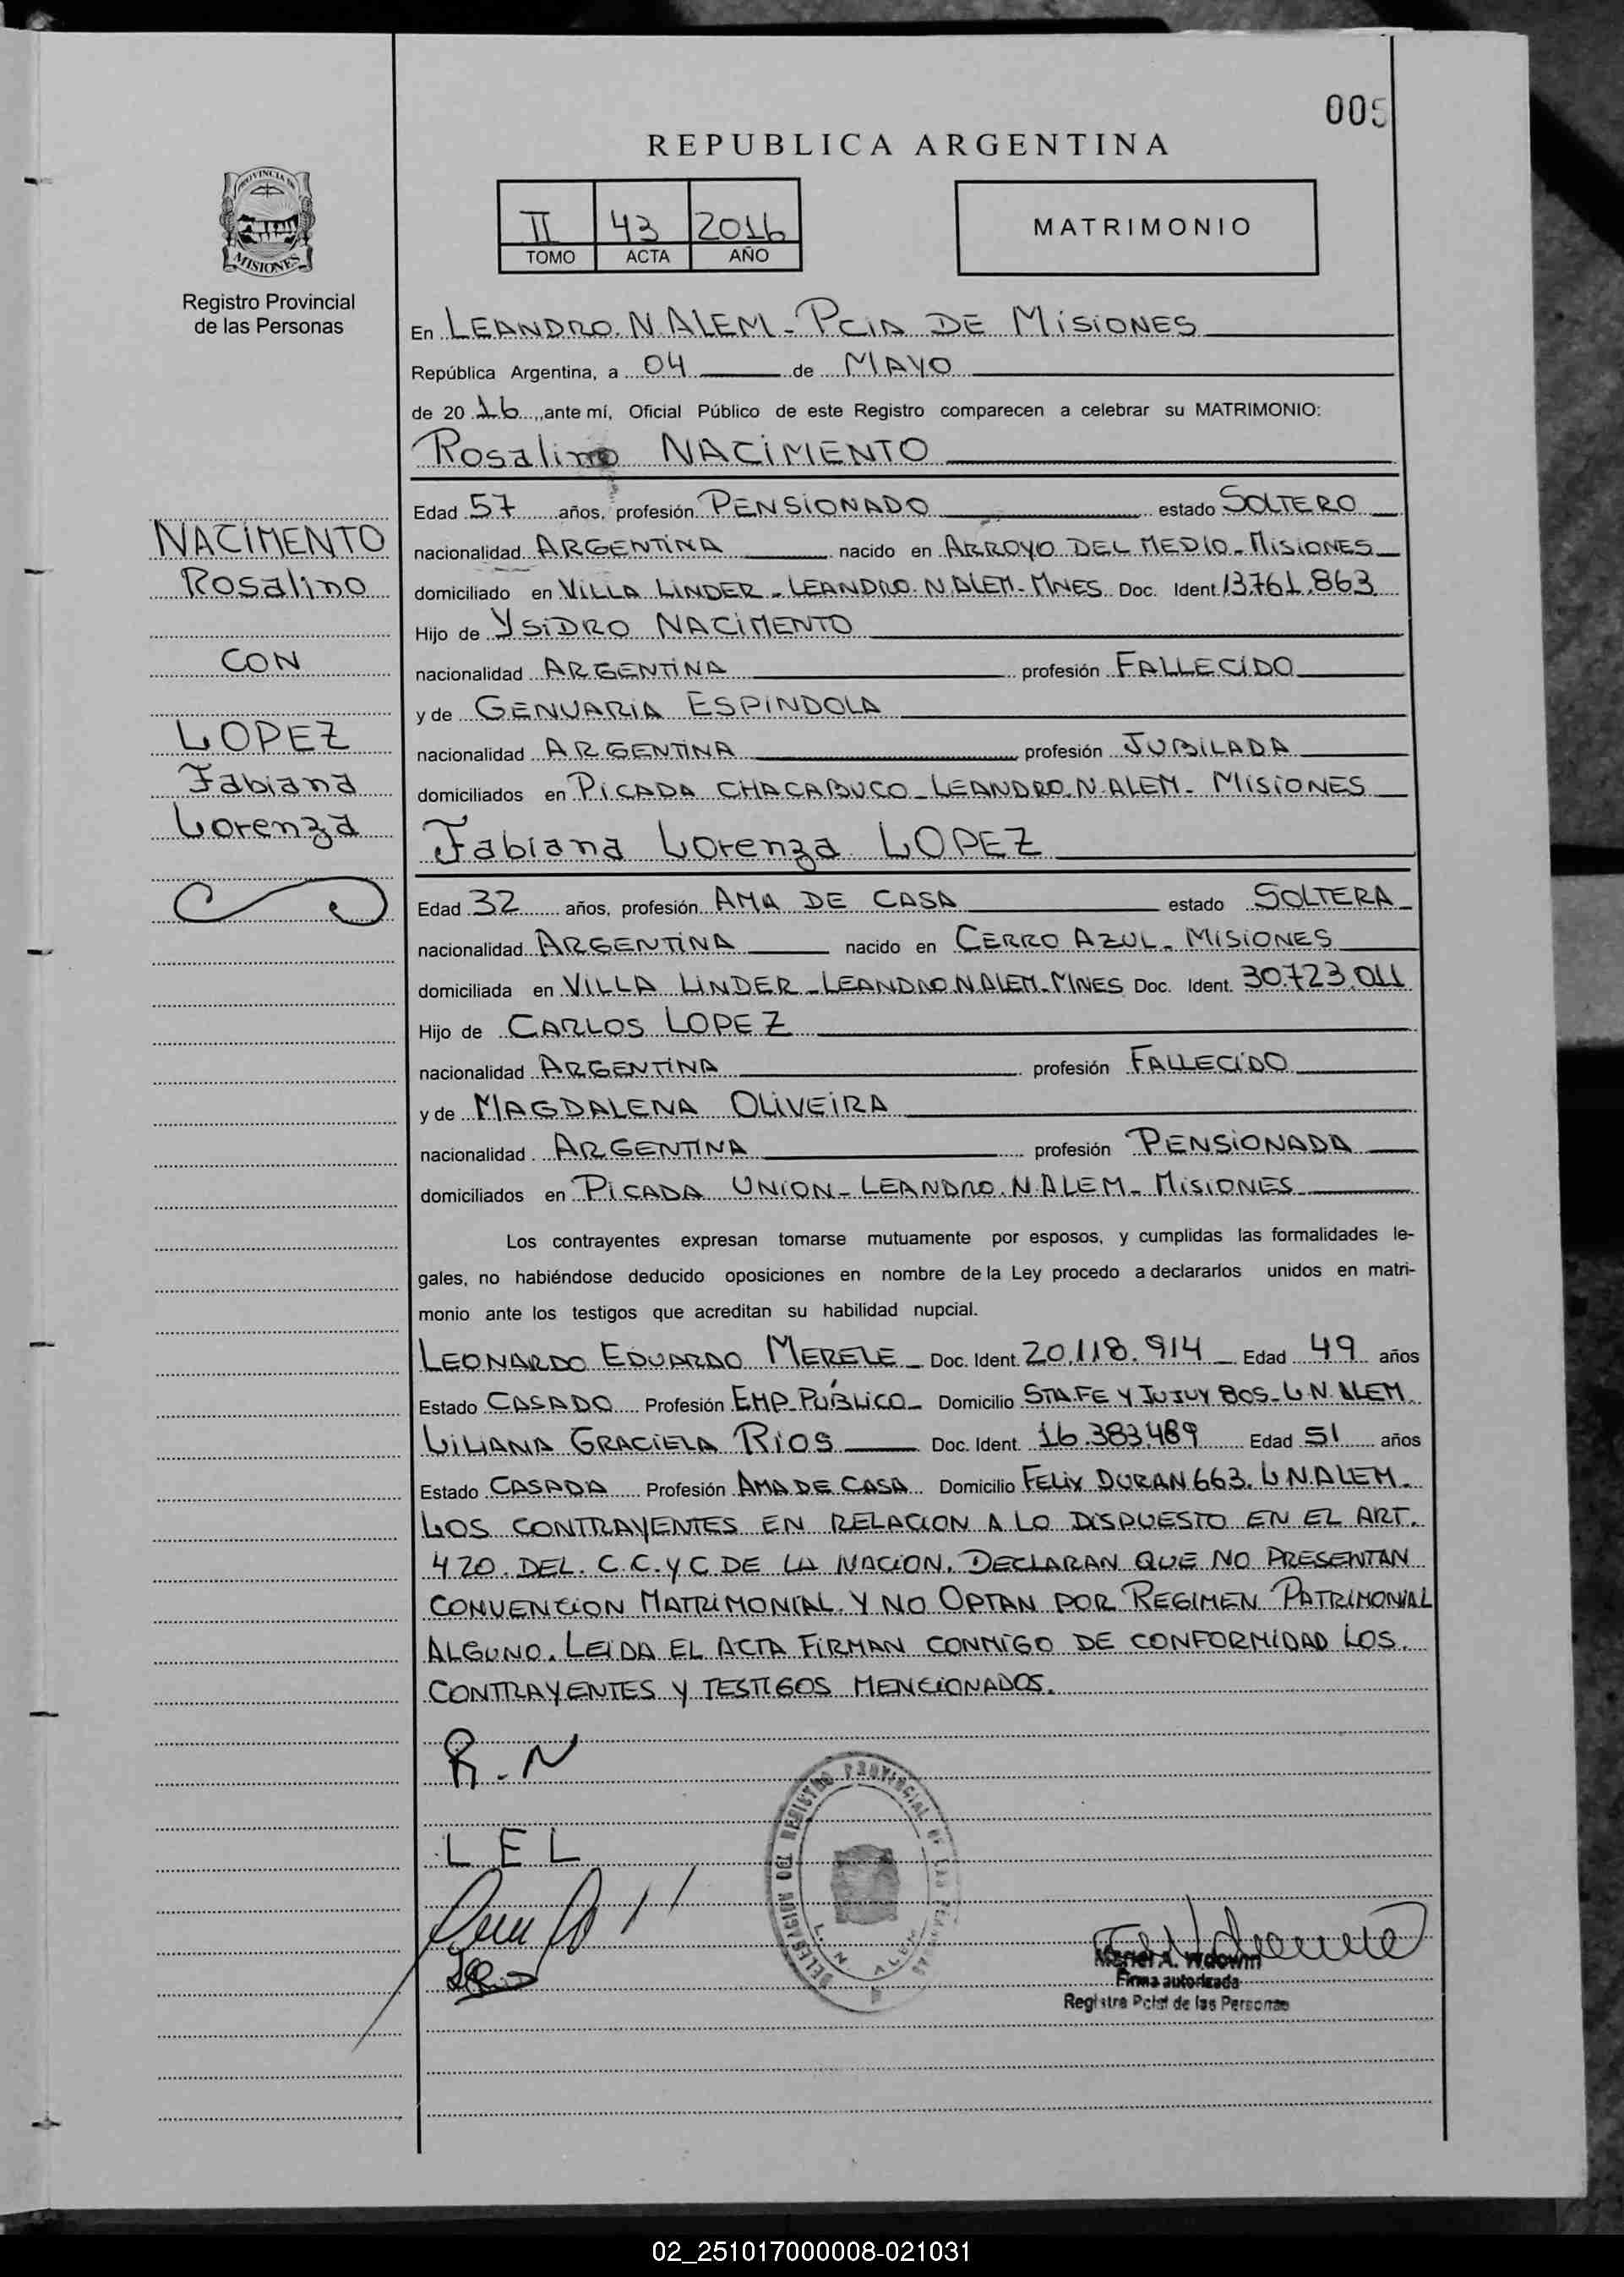 005
REPUBLICA ARGENTINA
PROVINCIA DE
MISIONES
Registro Provincial
de las Personas
II 43 2016
TOMO ACTA AÑO
MATRIMONIO
En LEANDRO.N.ALEM - PCIA DE MISIONES
República Argentina, a 04 de MAYO
de 20 16, ante mí, Oficial Público de este Registro comparecen a celebrar su MATRIMONIO:
Rosalino NACIMENTO
Edad 57 años, profesión PENSIONADO estado SOLTERO
nacionalidad ARGENTINA nacido en ARROYO DEL MEDIO - MISIONES
domiciliado en VILLA LINDER - LEANDRO.N.ALEM - MNES. Doc. Ident. 13.761.863
Hijo de YSIDRO NACIMENTO
nacionalidad ARGENTINA profesión FALLECIDO
y de GENUARIA ESPINDOLA
nacionalidad ARGENTINA profesión JUBILADA
domiciliados en PICADA CHACABUCO - LEANDRO.N.ALEM - MISIONES
NACIMENTO
Rosalino
CON
LOPEZ
Fabiana
Lorenza
Fabiana Lorenza LOPEZ
Edad 32 años, profesión AMA DE CASA estado SOLTERA
nacionalidad ARGENTINA nacido en CERRO AZUL - MISIONES
domiciliada en VILLA LINDER - LEANDRO N.ALEM - MNES Doc. Ident. 30.723.011
Hijo de CARLOS LOPEZ
nacionalidad ARGENTINA profesión FALLECIDO
y de MAGDALENA OLIVEIRA
nacionalidad ARGENTINA profesión PENSIONADA
domiciliados en PICADA UNION - LEANDRO.N.ALEM - MISIONES
Los contrayentes expresan tomarse mutuamente por esposos, y cumplidas las formalidades le-
gales, no habiéndose deducido oposiciones en nombre de la Ley procedo a declararlos unidos en matri-
monio ante los testigos que acreditan su habilidad nupcial.
LEONARDO EDUARDO MERELE - Doc. Ident. 20.118.914 Edad 49 años
Estado CASADO Profesión EMP. PÚBLICO - Domicilio STA.FE Y JUJUY 805 - L.N.ALEM.
LILIANA GRACIELA RIOS Doc. Ident. 16.383.489 Edad 51 años
Estado CASADA Profesión AMA DE CASA Domicilio FELIX DURAN 663. L.N.ALEM.
LOS CONTRAYENTES EN RELACION A LO DISPUESTO EN EL ART.
420. DEL. C.C.Y C DE LA NACION. DECLARAN QUE NO PRESENTAN
CONVENCION MATRIMONIAL Y NO OPTAN POR REGIMEN PATRIMONIAL
ALGUNO. LEIDA EL ACTA FIRMAN CONMIGO DE CONFORMIDAD LOS
CONTRAYENTES Y TESTIGOS MENCIONADOS.
R. N
L E L
DELEGACION DO REGISTRO PROVINCIAL DE LAS PERSONAS
L. N. ALEM
Firma autorizada
Registro Pcial de las Personas
02_251017000008-021031